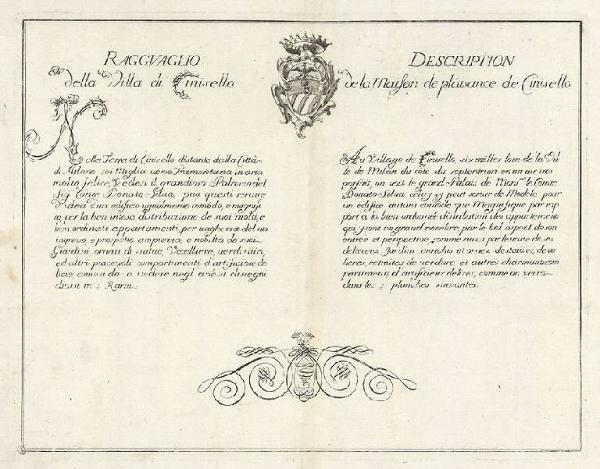 RAGGVAGLIO
della Villa di Cinisello
Nella Terra di Cinisello distante dalla Città
di Milano sei Miglia verso Tramontana, in aria
molto felice, Vedesi il grandioso Palazzo del
Sig. Conte Donato Silva, può questi servire
d'idea d'un edificio ugualmente comodo, e magnifi
co, per la ben intesa distribuzione de suoi molti, e
ben ordinati appartamenti, per vaghezza del suo
ingresso, e prospetto, ampiezza, e nobiltà de suoi
Giardini, ornati di statue, Uccelliere, verdi ritiri,
ed altri piacevoli compartimenti d'artificiose de
lizie, come si dà a vedere negl'annessi disegni
divisi in Rami.
DESCRIPTION
de la Maison de plaisance de Cinisello
Au Village de Cinisello, six milles loin de la Vil
le de Milan du côté du septentrion en un air tres
parfait, on voit le grand Palais de Mons.r le Comte
Donato Silva, peut servir de Modele pour
un edifice autant comode, que Magnifique par rap
port à la bien ordonnée distribution des appartemens
qui sont en grand nombre, par le bel aspect de son
entrée et perspective, comme aussi par
delicieux Jardins, enrichis et ornés de statües, de vo
lieres, retraites de verdure, et autres charmants com
partimens, et artificieuses delices, comme on verra
dans les planches suivantes.